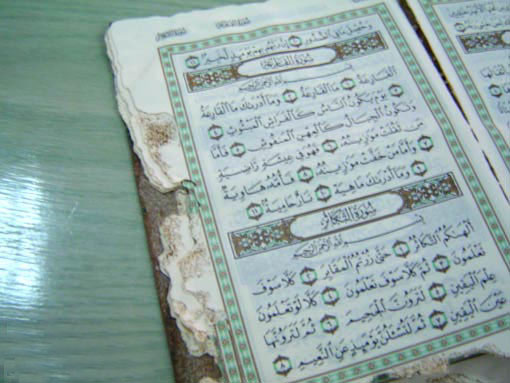 وَحُصِّلَ مَا فِى ٱلصُّدُورِ ۝ إِنَّ رَبَّهُم بِهِمْ يَوْمَئِذٍ لَّخَبِيرٌ ۝
سُورَةُ القَارِعَةِ
بِسْمِ ٱللَّهِ ٱلرَّحْمَٰنِ ٱلرَّحِيمِ
ٱلْقَارِعَةُ ۝ مَا ٱلْقَارِعَةُ ۝ وَمَآ أَدْرَىٰكَ مَا ٱلْقَارِعَةُ
۝ يَوْمَ يَكُونُ ٱلنَّاسُ كَٱلْفَرَاشِ ٱلْمَبْثُوثِ ۝
وَتَكُونُ ٱلْجِبَالُ كَٱلْعِهْنِ ٱلْمَنفُوشِ ۝ فَأَمَّا
مَن ثَقُلَتْ مَوَٰزِينُهُۥ ۝ فَهُوَ فِى عِيشَةٍ رَّاضِيَةٍ
۝ وَأَمَّا مَنْ خَفَّتْ مَوَٰزِينُهُۥ ۝ فَأُمُّهُۥ هَاوِيَةٌ
۝ وَمَآ أَدْرَىٰكَ مَا هِيَهْ ۝ نَارٌ حَامِيَةٌۢ ۝
سُورَةُ التَّكَاثُرِ
بِسْمِ ٱللَّهِ ٱلرَّحْمَٰنِ ٱلرَّحِيمِ
أَلْهَىٰكُمُ ٱلتَّكَاثُرُ ۝ حَتَّىٰ زُرْتُمُ ٱلْمَقَابِرَ ۝ كَلَّا سَوْفَ
تَعْلَمُونَ ۝ ثُمَّ كَلَّا سَوْفَ تَعْلَمُونَ ۝ كَلَّا لَوْ تَعْلَمُونَ
عِلْمَ ٱلْيَقِينِ ۝ لَتَرَوُنَّ ٱلْجَحِيمَ ۝ ثُمَّ لَتَرَوُنَّهَا
عَيْنَ ٱلْيَقِينِ ۝ ثُمَّ لَتُسْـَٔلُنَّ يَوْمَئِذٍ عَنِ ٱلنَّعِيمِ ۝